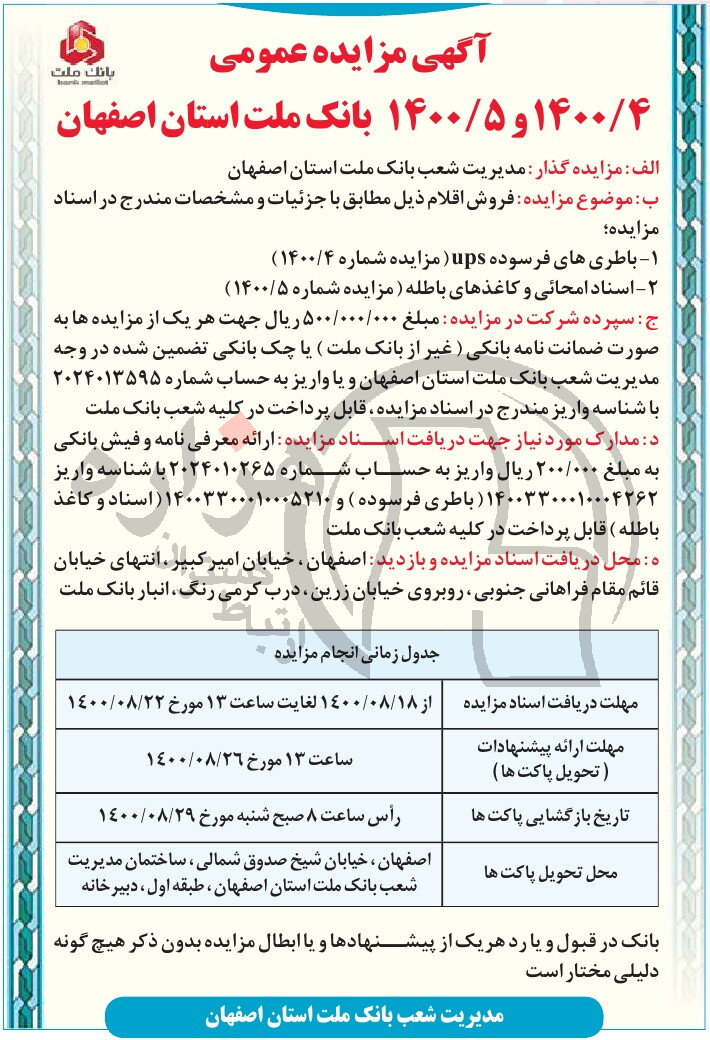 بانک ملت
bank mellat
آگهی مزایده عمومی
۱۴۰۰/۴ و ۱۴۰۰/۵ بانک ملت استان اصفهان
الف: مزایده گذار: مدیریت شعب بانک ملت استان اصفهان
ب: موضوع مزایده: فروش اقلام ذیل مطابق با جزئیات و مشخصات مندرج در اسناد
مزایده؛
۱- باطری های فرسوده ups ( مزایده شماره ۱۴۰۰/۴ )
۲- اسناد امحائی و کاغذهای باطله ( مزایده شماره ۱۴۰۰/۵ )
ج: سپرده شرکت در مزایده: مبلغ ۵۰۰/۰۰۰/۰۰۰ ریال جهت هر یک از مزایده ها به
صورت ضمانت نامه بانکی ( غیر از بانک ملت ) یا چک بانکی تضمین شده در وجه
مدیریت شعب بانک ملت استان اصفهان و یا واریز به حساب شماره ۲۰۲۴۰۱۳۵۹۵
با شناسه واریز مندرج در اسناد مزایده، قابل پرداخت در کلیه شعب بانک ملت
د: مدارک مورد نیاز جهت دریافت اسناد مزایده: ارائه معرفی نامه و فیش بانکی
به مبلغ ۲۰۰/۰۰۰ ریال واریز به حساب شماره ۲۰۲۴۰۱۰۲۶۵ با شناسه واریز
۱۴۰۰۳۳۰۰۰۱۰۰۰۴۲۶۲ ( باطری فرسوده ) و ۱۴۰۰۳۳۰۰۰۱۰۰۰۵۲۱۰ ( اسناد و کاغذ
باطله ) قابل پرداخت در کلیه شعب بانک ملت
ه: محل دریافت اسناد مزایده و بازدید: اصفهان، خیابان امیرکبیر، انتهای خیابان
قائم مقام فراهانی جنوبی، روبروی خیابان زرین، درب کرمی رنگ، انبار بانک ملت
جدول زمانی انجام مزایده
مهلت دریافت اسناد مزایده از ۱۴۰۰/۰۸/۱۸ لغایت ساعت ۱۳ مورخ ۱۴۰۰/۰۸/۲۲
مهلت ارائه پیشنهادات
( تحویل پاکت ها ) ساعت ۱۳ مورخ ۱۴۰۰/۰۸/۲۶
تاریخ بازگشایی پاکت ها رأس ساعت ۸ صبح شنبه مورخ ۱۴۰۰/۰۸/۲۹
محل تحویل پاکت ها اصفهان، خیابان شیخ صدوق شمالی، ساختمان مدیریت
شعب بانک ملت استان اصفهان، طبقه اول، دبیرخانه
بانک در قبول و یا رد هریک از پیشنهادها و یا ابطال مزایده بدون ذکر هیچ گونه
دلیلی مختار است
مدیریت شعب بانک ملت استان اصفهان